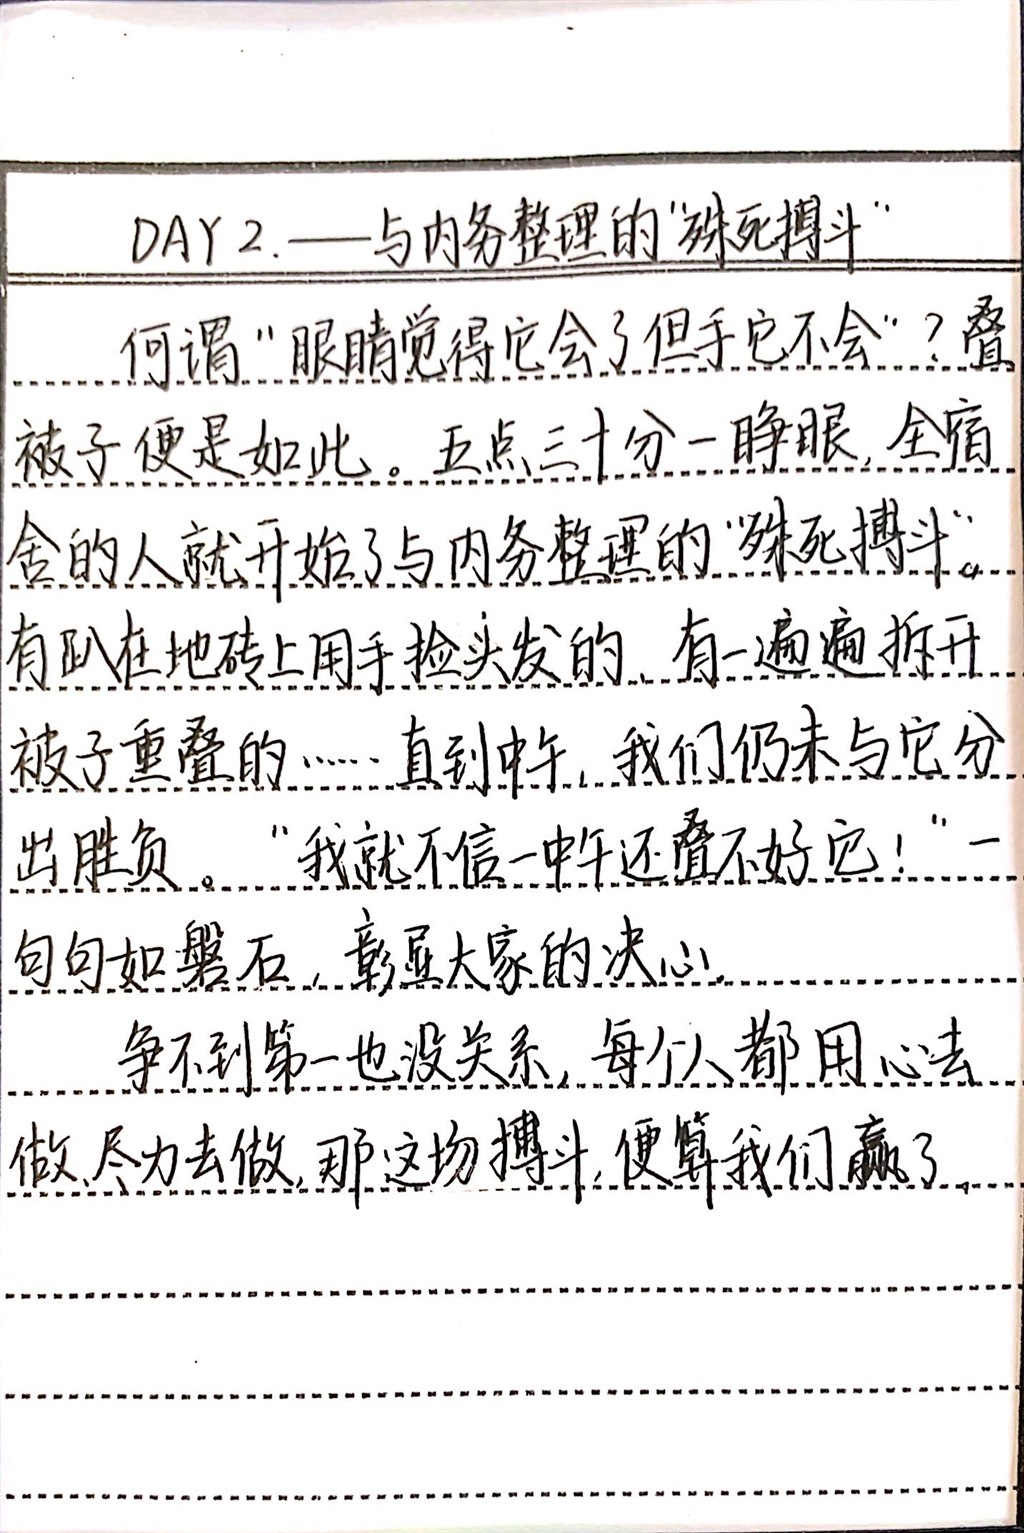 DAY 2.——与内务整理的“殊死搏斗”
何谓“眼睛觉得它会了但手它不会”？叠
被子便是如此。五点三十分一睁眼，全宿
舍的人就开始了与内务整理的“殊死搏斗”。
有趴在地砖上用手捡头发的、有一遍遍拆开
被子重叠的……直到中午，我们仍未与它分
出胜负。“我就不信一中午还叠不好它！”一
句句如磐石，彰显大家的决心。
争不到第一也没关系，每个人都用心去
做、尽力去做，那这场搏斗，便算我们赢了。